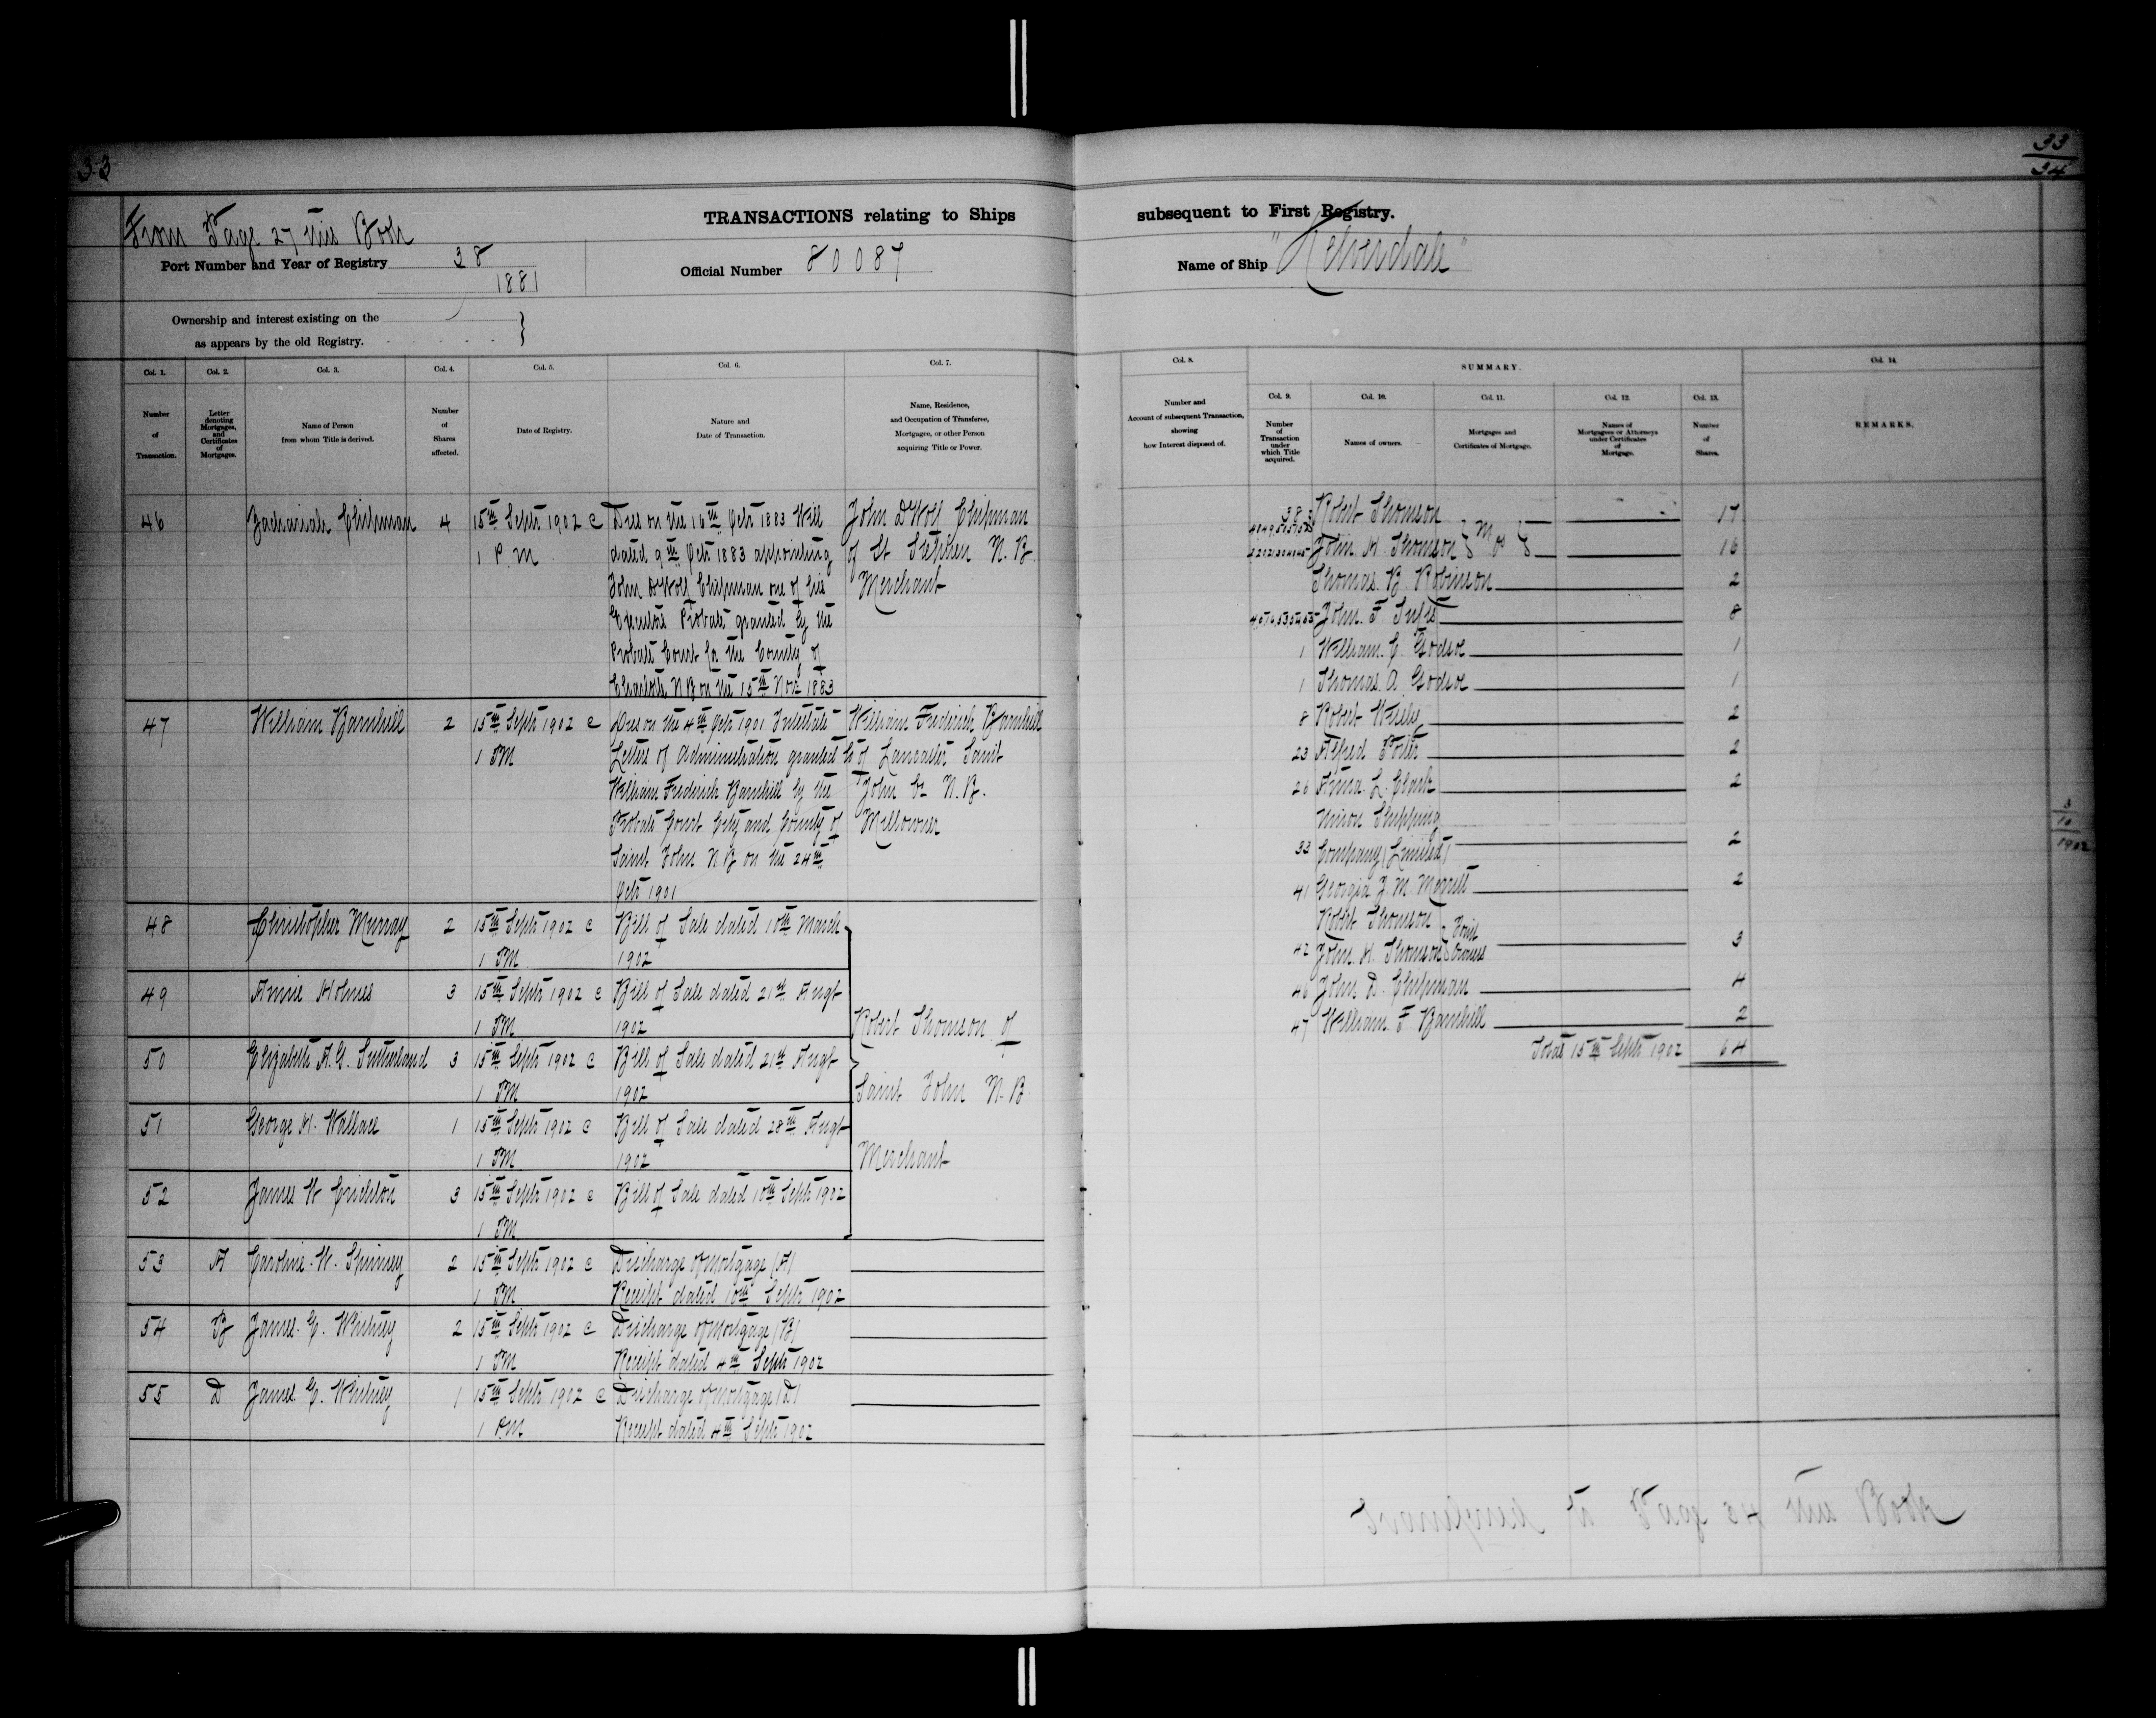 33
33
34
From Page 27 this Book
TRANSACTIONS relating to Ships subsequent to First Registry.
Port Number and Year of Registry 38
1881
Official Number 80087
Name of Ship
Ownership and interest existing on the
as appears by the old Registry.
Col. 1.
Number
of
Transaction.
Col. 2.
Letter
denoting
Mortgages,
and
Certificates
of
Mortgages.
Col. 3.
Name of Person
from whom Title is derived.
Col. 4.
Number
of
Shares
affected.
Col. 5.
Date of Registry.
Col. 6.
Nature and
Date of Transaction.
Col. 7.
Name, Residence,
and Occupation of Transferee,
Mortgagee, or other Person
acquiring Title or Power.
46 Zachariah Chipman 4
15th Septr 1902 @
1 P.M
Died on the 16th Octr 1883 Will
dated 9th Octr 1883 appointing
John DWolf Chipman one of his
Executors Probate granted by the
Probate Court for the County of
Charlotte NB on the 15th Novr 1883
John DWolf Chipman
of St Stephen N.B.
Merchant
47 William Barnhill 2
15th Septr 1902 @
1 PM
Died on the 4th Octr 1901 Intestate
Letters of Administration granted to
William Frederick Barnhill by the
Probate Court City and County of
Saint John NB on the 24th
Octr 1901
William Frederick Barnhill
of Lancaster Saint
John Co N.B.
Millowner
48 Christopher Murray 2
15th Septr 1902 @
1 PM
Bill of Sale dated 10th March
1902
49 Annie Holmes 3
15th Septr 1902 @
1 PM
Bill of Sale dated 21st Augt
1902
50 Elizabeth A.G. Sutherland 3
15th Septr 1902 @
1 PM
Bill of Sale dated 21st Augt
1902
51 George H. Wallace 1
15th Septr 1902 @
1 PM
Bill of Sale dated 28th Augt
1902
52 James W Crichton 3
15th Septr 1902 @
1 PM
Bill of Sale dated 10th Septr 1902
Robert Thomson of
Saint John N.B
Merchant
53 A Caroline W. Spinney 2
15th Septr 1902 @
1 PM
Discharge of Mortgage (A)
Receipt dated 10th Septr 1902
54 B James E. Whitney 2
15th Septr 1902 @
1 PM
Discharge of Mortgage (B)
Receipt dated 4th Septr 1902
55 D James E. Whitney 1
15th Septr 1902 @
1 P.M
Discharge of Mortgage (D)
Receipt dated 4th Septr 1902
Col. 8.
Number and
Account of subsequent Transaction,
showing
how Interest disposed of.
SUMMARY.
Col. 9.
Number
of
Transaction
under
which Title
acquired.
Col. 10.
Names of owners.
Col. 11.
Mortgages and
Certificates of Mortgage.
Col. 12.
Names of
Mortgagees or Attorneys
under Certificates
of
Mortgage.
Col. 13.
Number
of
Shares.
Col. 14.
REMARKS.
Robert Thomson 17
John H. Thomson 16
Thomas B. Robinson 2
John F. 8
1 William C. Godsoe 1
1 Thomas A Godsoe 1
8 Robert 2
23 Alfred Porter 2
26 Anna L. Clark 2
Union Shipping
33 Company (Limited) 2
41 Georgia J. M. Merritt 2
Robert Thomson
42 John H. Thomson Joint Owners 3
46 John D. Chipman 4
47 William F Barnhill 2
Total 15th Septr 1902 64
3
10
1902
Transferred to Page 34 this Book